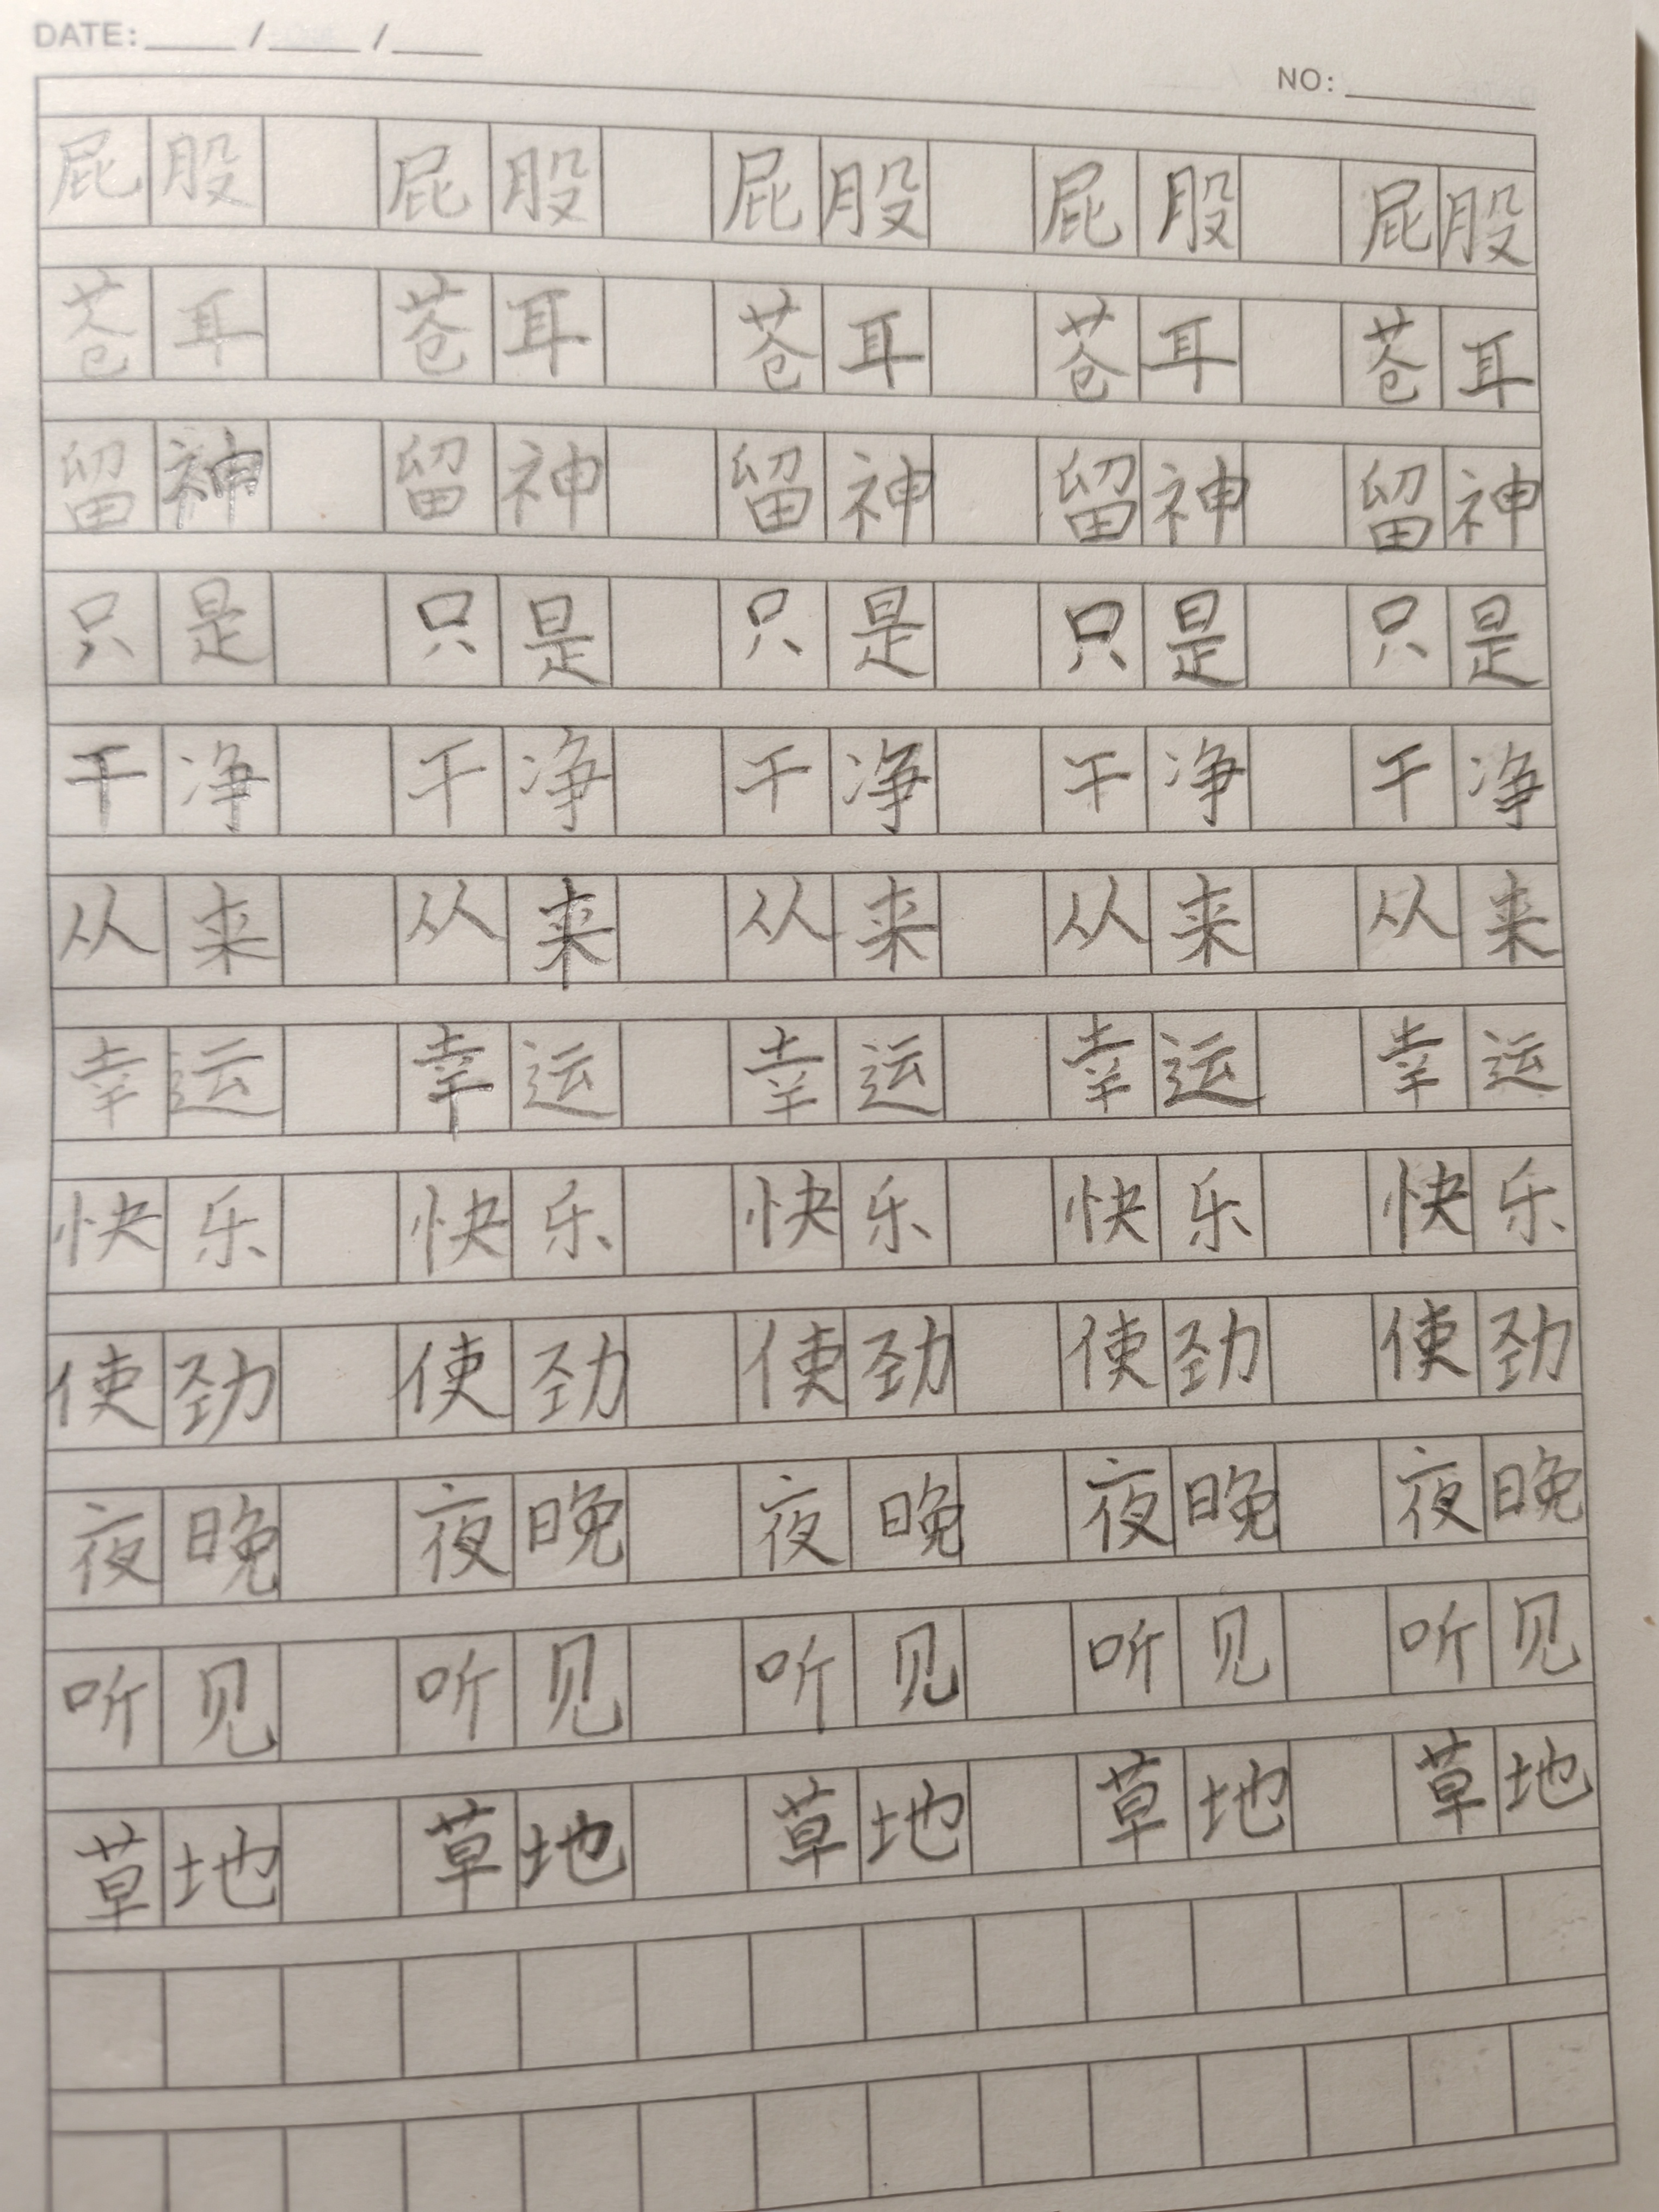 DATE: ____ /____ /____
NO: ________
屁股 屁股 屁股 屁股 屁股
苍耳 苍耳 苍耳 苍耳 苍耳
留神 留神 留神 留神 留神
只是 只是 只是 只是 只是
干净 干净 干净 干净 干净
从来 从来 从来 从来 从来
幸运 幸运 幸运 幸运 幸运
快乐 快乐 快乐 快乐 快乐
使劲 使劲 使劲 使劲 使劲
夜晚 夜晚 夜晚 夜晚 夜晚
听见 听见 听见 听见 听见
草地 草地 草地 草地 草地